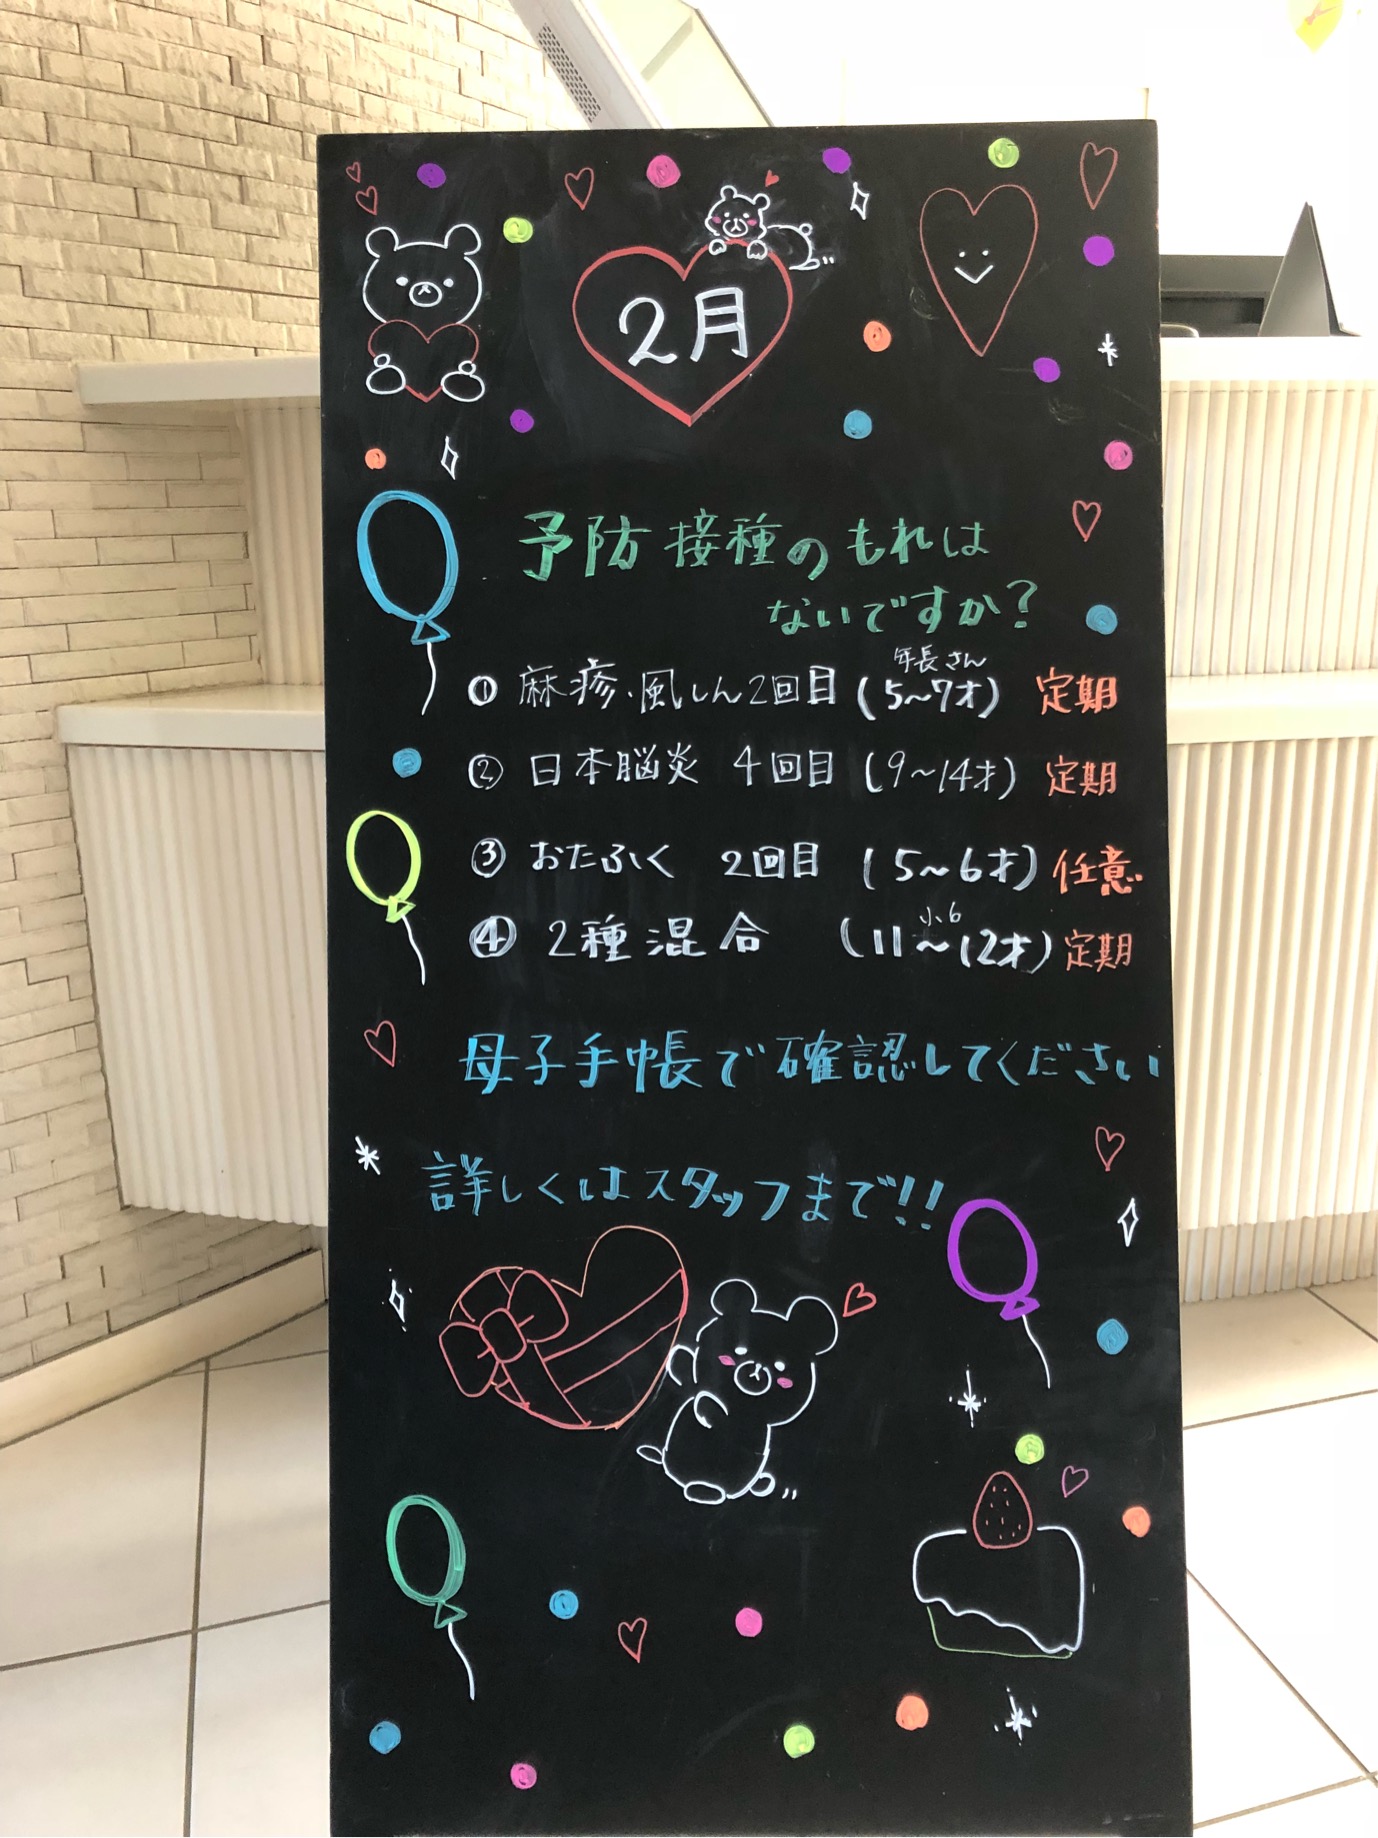 2月
予防接種のもれは
ないですか?
年長さん
① 麻疹・風しん2回目 (5~7才) 定期
② 日本脳炎 4回目 (9~14才) 定期
③ おたふく 2回目 (5~6才) 任意
小6
④ 2種混合 (11~12才) 定期
母子手帳で確認してください
詳しくはスタッフまで!!